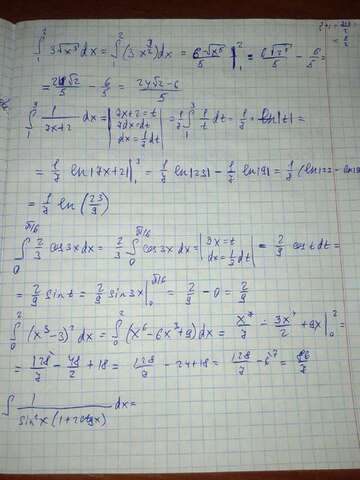 ∫₁² 3√x³ dx = ∫₁² (3x^(3/2)) dx = 6·√x⁵/5 |₁² = 6√2⁵/5 - 6/5 =
= 24√2/5 - 6/5 = (24√2-6)/5
∫₁³ 1/(7x+2) dx = |7x+2=t 7dx=dt dx=1/7 dt| = 1/7 ∫₁³ 1/t dt = 1/7 · ln|t| =
= 1/7 ln|7x+2| |₁³ = 1/7 ln|23| - 1/7 ln|9| = 1/7 (ln|23 - ln|9|
= 1/7 ln(23/9)
∫₀^(π/6) 2/3 cos3x dx = 2/3 ∫₀^(π/6) cos3x dx = |3x=t dx=1/3 dt| = 2/9 cost dt =
= 2/9 sint = 2/9 sin3x |₀^(π/6) = 2/9 - 0 = 2/9
∫₀² (x³-3)² dx = ∫₀² (x⁶-6x³+9) dx = x⁷/7 - 3x⁴/2 + 9x |₀² =
= 128/7 - 48/2 + 18 = 128/7 - 24+18 = 128/7 - 6 = 86/7
∫ 1/(sin²x(1+2ctgx)) dx =